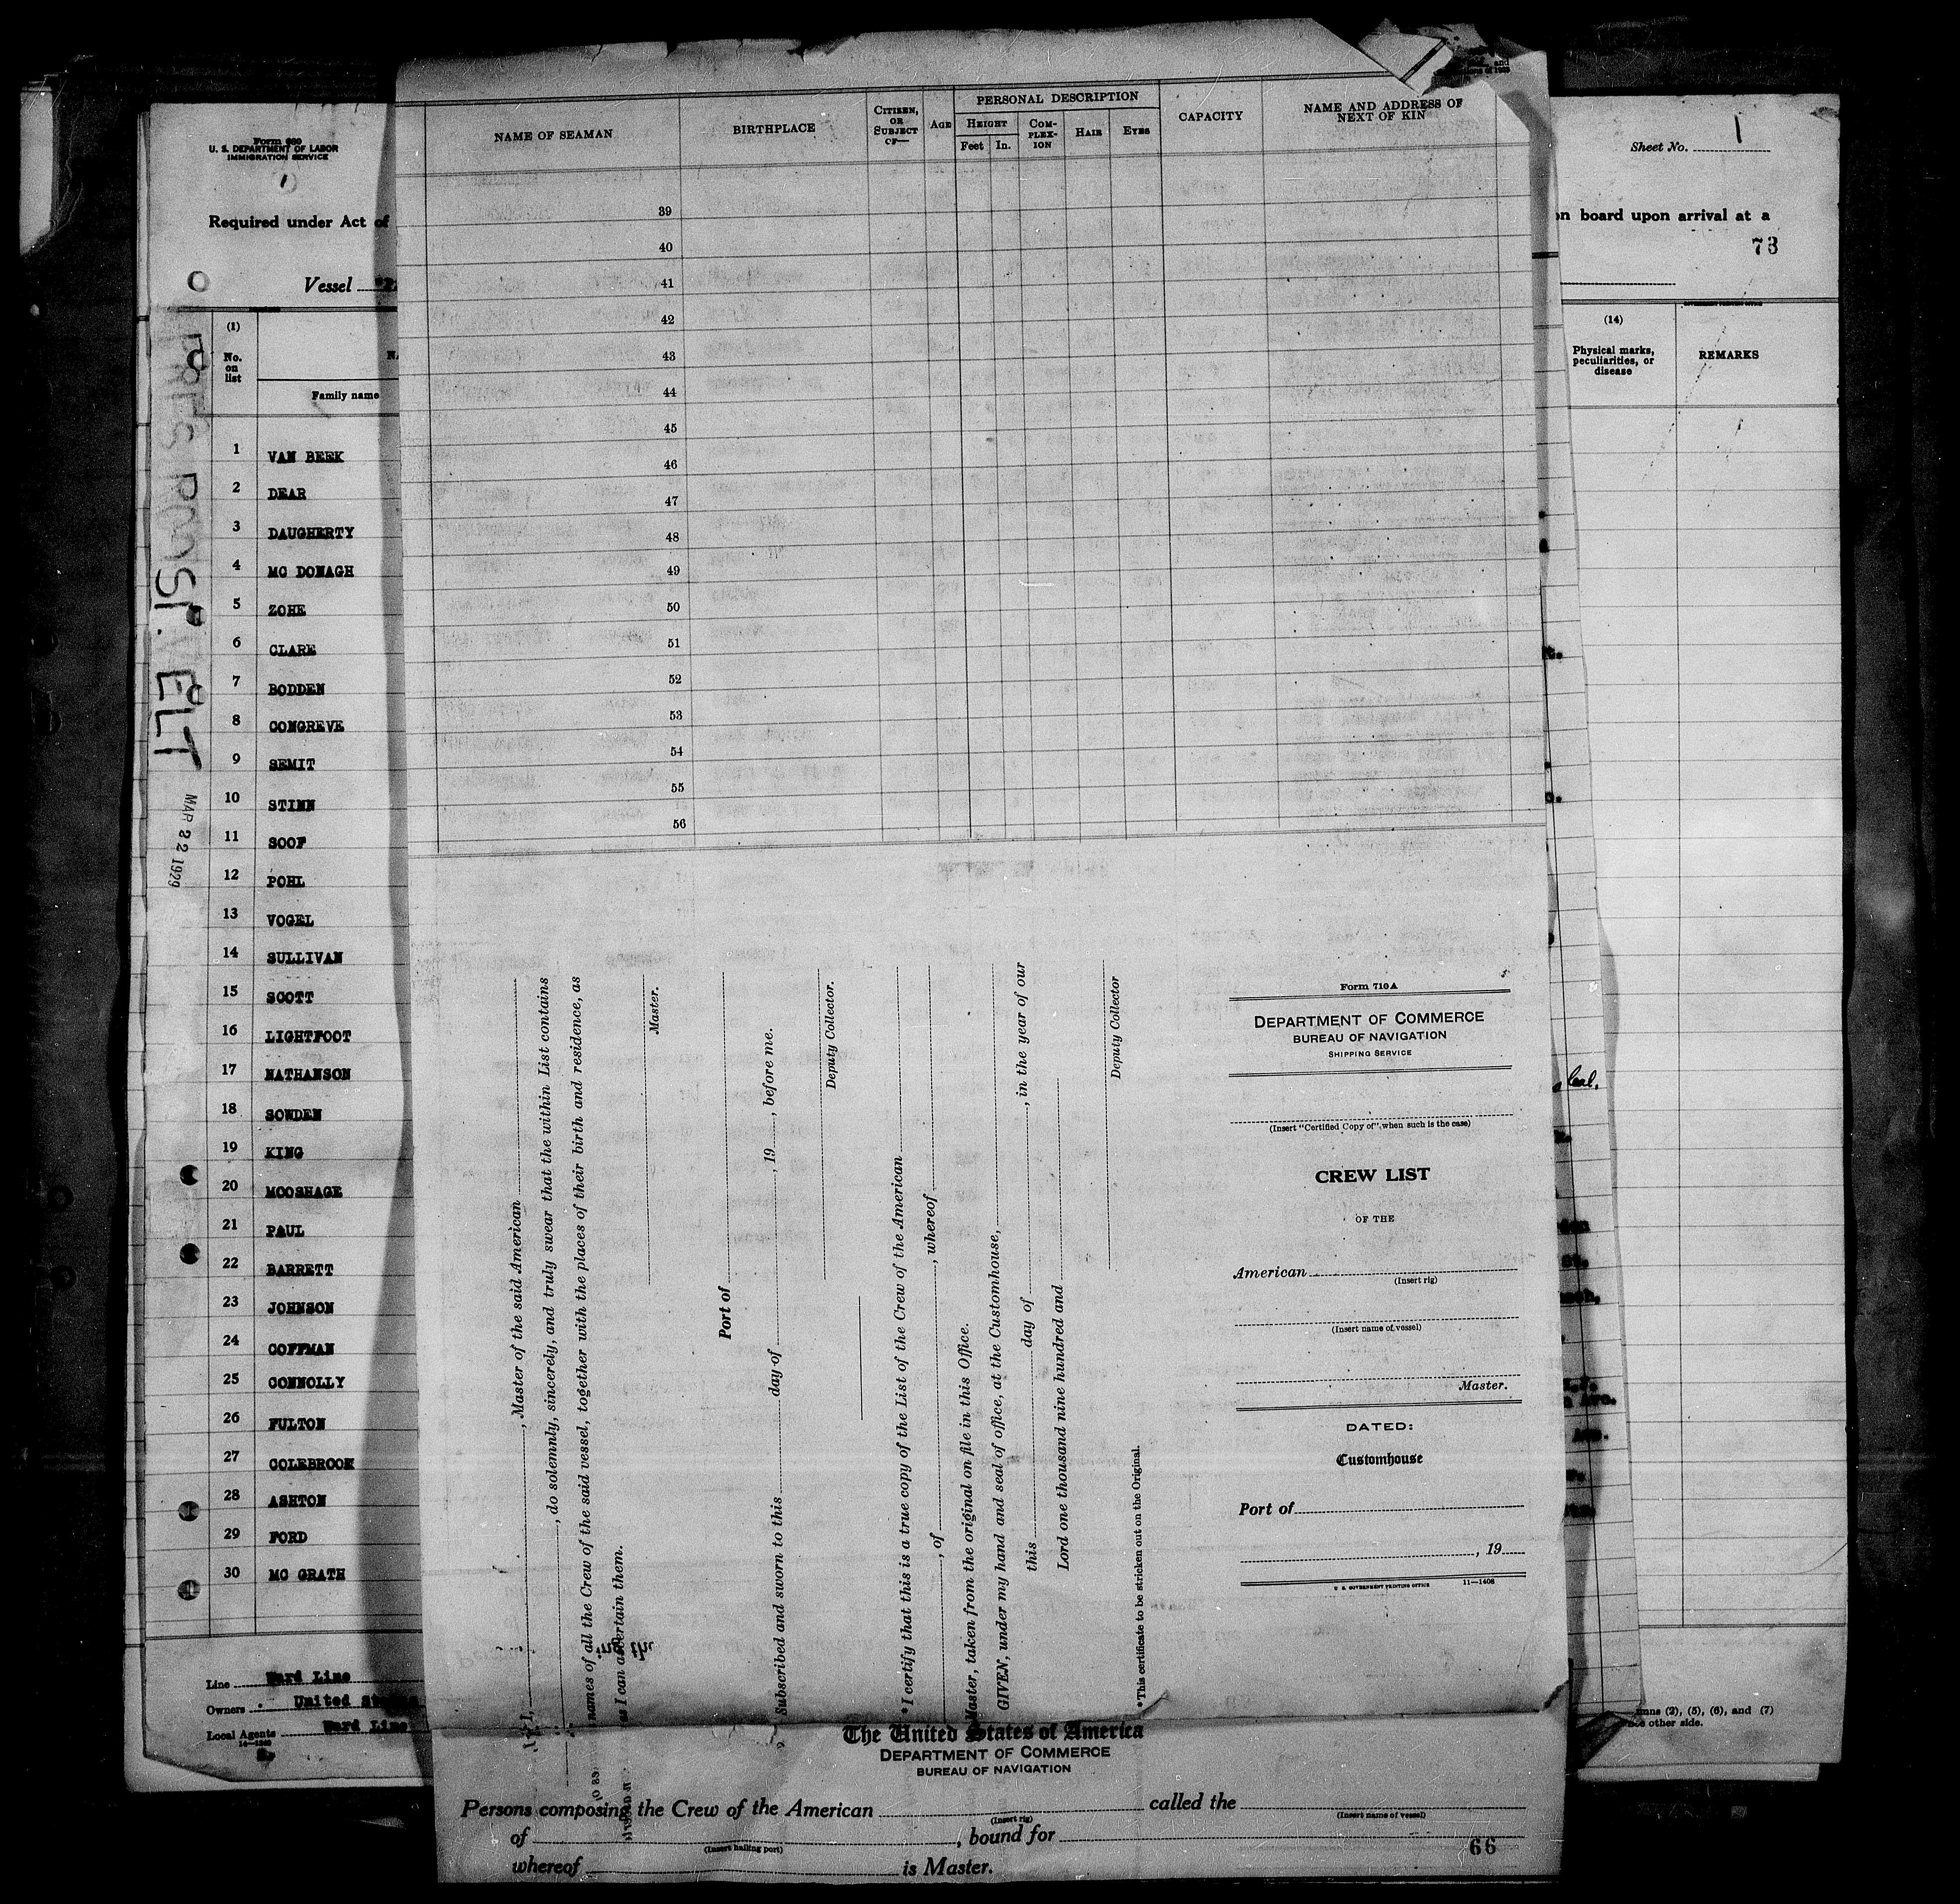 Form 680
U. S. DEPARTMENT OF LABOR
IMMIGRATION SERVICE
1
Required under Act of
Vessel
(1)
No.
on
list
Family name
1 VAN BEEK
2 DEAR
3 DAUGHERTY
4 MC DONAGH
5 ZOHE
6 CLARE
7 BODDEN
8 CONGREVE
9 SEMIT
10 STINN
11 SOOF
12 POHL
13 VOGEL
14 SULLIVAN
15 SCOTT
16 LIGHTFOOT
17 NATHANSON
18 SOWDEN
19 KING
20 MOOSHAGE
21 PAUL
22 BARRETT
23 JOHNSON
24 COFFMAN
25 CONNOLLY
26 FULTON
27 COLEBROOK
28 ASHTON
29 FORD
30 MC GRATH
Line Ward Line
Owners United States
Local Agents Ward Line
MAR 22 1929
NAME OF SEAMAN
BIRTHPLACE
CITIZEN,
OR
SUBJECT
OF—
AGE
PERSONAL DESCRIPTION
HEIGHT
Feet In.
COM-
PLEX-
ION
HAIR
EYES
CAPACITY
NAME AND ADDRESS OF
NEXT OF KIN
39
40
41
42
43
44
45
46
47
48
49
50
51
52
53
54
55
56
, Master of the said American
, do solemnly, sincerely, and truly swear that the within List contains
names of all the Crew of the said vessel, together with the places of their birth and residence, as
as I can ascertain them.
Master.
Port of
Subscribed and sworn to this day of , 19 , before me.
Deputy Collector.
*I certify that this is a true copy of the List of the Crew of the American
, of , whereof
Master, taken from the original on file in this Office.
GIVEN, under my hand and seal of office, at the Customhouse,
this day of , in the year of our
Lord one thousand nine hundred and
Deputy Collector
*This certificate to be stricken out on the Original.
Form 710 A
DEPARTMENT OF COMMERCE
BUREAU OF NAVIGATION
SHIPPING SERVICE
(Insert "Certified Copy of", when such is the case)
CREW LIST
OF THE
American
(Insert rig)
(Insert name of vessel)
Master.
DATED:
Customhouse
Port of
, 19
U. S. GOVERNMENT PRINTING OFFICE 11—1408
The United States of America
DEPARTMENT OF COMMERCE
BUREAU OF NAVIGATION
Persons composing the Crew of the American called the
(Insert rig) (Insert name of vessel)
of , bound for
(Insert hailing port)
66
whereof is Master.
Sheet No. 1
on board upon arrival at a
73
(14)
Physical marks,
peculiarities, or
disease
REMARKS
(2), (5), (6), and (7)
other side.